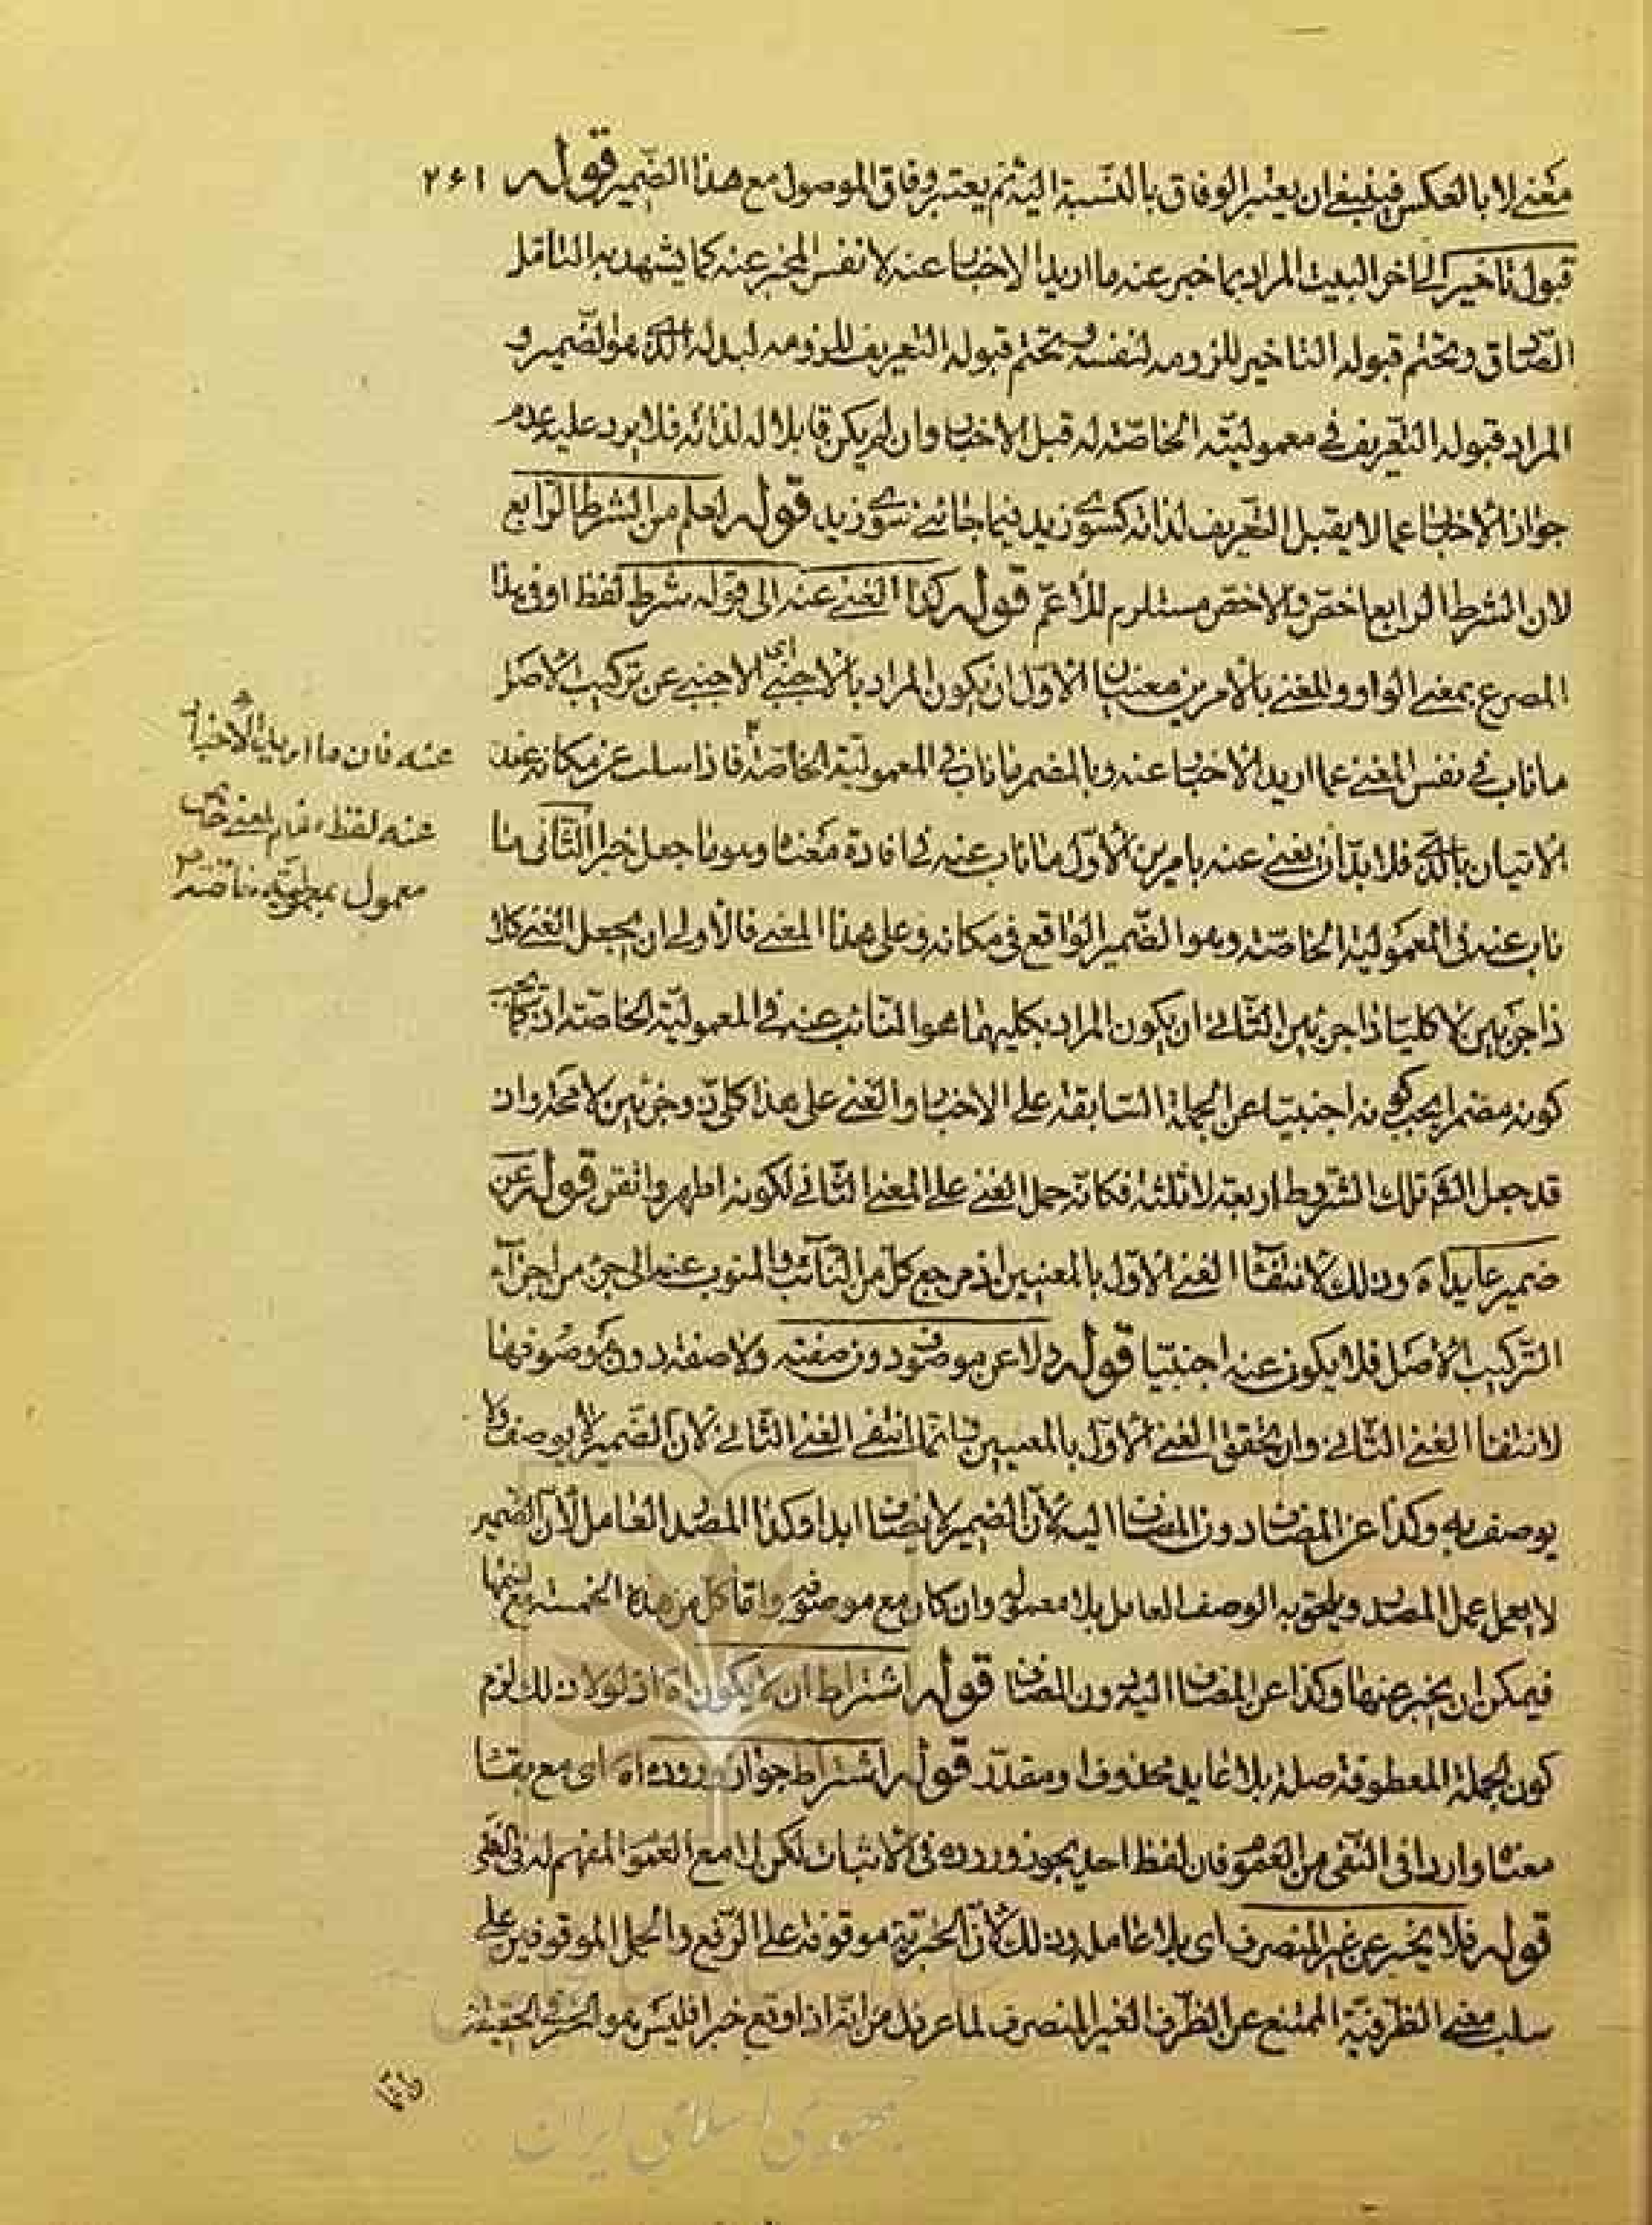 معنى لا بالعكس فينبغى ان يعتبر الوفاق بالنسبة اليه ثم يعتبر وفاق الموصول مع هذا الضمير قوله ٢۶١
قبول تاخير الى اخر البيت المراد بما خبر عنه ما اريد الاخبار عنه لا نفس المخبر عنه كما يشهد به التامل
الصادق وتحتم قبوله التاخير للزومه لنفسه وتحتم قبوله التعريف للزومه لبدله الذى هو الضمير و
المراد قبوله التعريف فى معموليته الخاصة له قبل الاخبار وان لم يكن قابلا له لذاته فلا يرد عليه عدم
جواز الاخبار عما لا يقبل التعريف لذاته كسوى زيد فيما جائنى سوى زيد قوله لعلم من الشرط الرابع
لان الشرط الرابع اخص والاخص مستلزم للاعم قوله كذا الغنى عنه الى قوله شرط لفظ او فى هذا
المصرع بمعنى الواو والمغنى بالامرين معنيان الاول ان يكون المراد بالاجنبى اى الاجنبى عن تركيب الاصل
ما ناب فى نفس المغنى عما اريد الاخبار عنه وبالمضمر ما ناب فى المعمولية الخاصة فاذا سلب عن مكانه عند
الاتيان بالذى فلا بد ان يغنى عنه بامرين الاول ما ناب عنه فى افادة معناه وهو ما جعل خبرا الثانى ما
ناب عنه فى المعمولية الخاصة وهو الضمير الواقع فى مكانه وعلى هذا المعنى فالاولى ان يجعل الغنى كلا
ذا جزئين لا كليا ذا جزئين الثانى ان يكون المراد بكليهما هو النائب عنه فى المعمولية الخاصة اذ كما يجب
كونه مضمرا يجب كونه اجنبيا عن الجملة السابقة على الاخبار والغنى على هذا كلى ذو جزئين لا محذور اذ
قد جعل الشم تلك الشروط اربعة لا ثلثة فكانه حمل الغنى على المعنى الثانى لكونه اظهر واتقن قوله عن
ضمير عايد اه وذلك لانتفاء الغنى الاول بالمعنيين اذ مرجع كل من النائب والمنوب عنه الى جزء من اجزاء
التركيب الاصل فلا يكون عنه اجنبيا قوله ولا عن موصوف دون صفته ولا صفة دون موصوفها
لانتفاء الغنى الثانى وان تحقق الغنى الاول بالمعنيين فانما انتفى الغنى الثانى لان الضمير لا يوصف ولا
يوصف به وكذا عن المضاف دون المضاف اليه لان الضمير لا يضاف ابدا وكذا المصدر العامل لان الضمير
لا يعمل عمل المصدر ويلحق به الوصف العامل بلا معموله وان كان مع موصوفه واما كل من هذه الخمسة مع
فيمكن ان يخبر عنها وكذا عن المضاف اليه دون المضاف قوله اشتراط ان يكون اه اذ لولا ذلك لزم
كون الجملة المعطوفة صلة بلا عايد محذوف او مقدر قوله اشتراط جواز وروده اه اى مع بقاء
معناه وارد فى النفى من العموم فان لفظ احد يجوز وروده فى الاثبات لكن لا مع العموم المفهم له فى النفى
قوله فلا يخبر عن غير المنصرف اى بلا عامل وذلك لان الخبرية موقوفة على الرفع والحمل الموقوفين على
سلب معنى الظرفية الممتنع عن الظرف الغير المنصرف لما عرفت من انه اذا وقع خبرا فليس هو الخبر فى الحقيقة
عنه فان ما اريد الاخبار
عنه لفظ
معمول